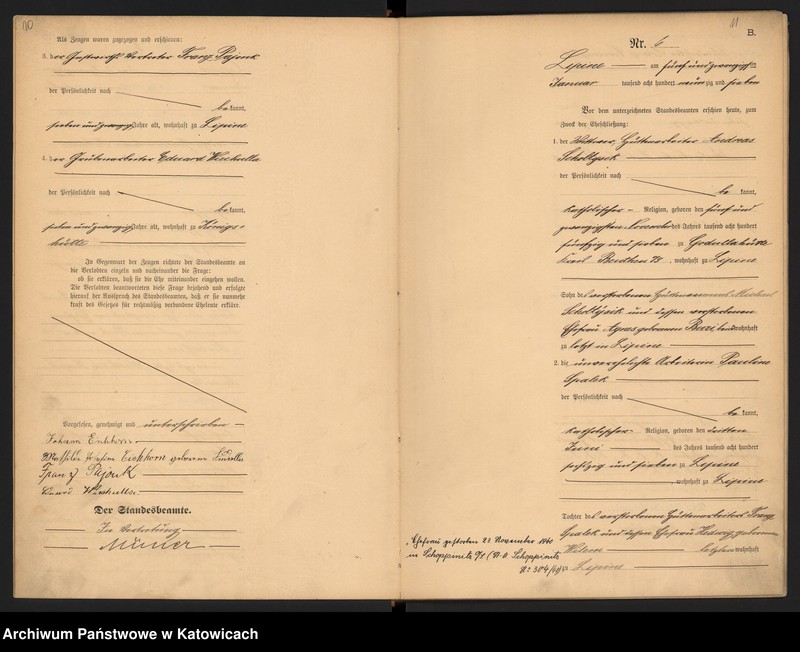 10
Als Zeugen waren zugezogen und erschienen:
3. der Gastwirth Vertreter Franz Pajonk
der Persönlichkeit nach
bekannt,
sieben und zwanzig Jahre alt, wohnhaft zu Lipine
4. der Grubenarbeiter Eduard
der Persönlichkeit nach
bekannt,
sieben und zwanzig Jahre alt, wohnhaft zu Königs-
hütte
In Gegenwart der Zeugen richtete der Standesbeamte an
die Verlobten einzeln und nacheinander die Frage:
ob sie erklären, daß sie die Ehe miteinander eingehen wollen.
Die Verlobten beantworteten diese Frage bejahend und erfolgte
hierauf der Ausspruch des Standesbeamten, daß er sie nunmehr
kraft des Gesetzes für rechtmäßig verbundene Eheleute erkläre.
Vorgelesen, genehmigt und unterschrieben
Johann Eichhorn
Eichhorn geborene
Franz Pajonk
Der Standesbeamte.
In Vertretung
11
B.
Nr. 6
Lipine am fünf und zwanzigsten
Januar tausend acht hundert neunzig und sieben
Vor dem unterzeichneten Standesbeamten erschien heute, zum
Zweck der Eheschließung:
1. der Wittwer, Hüttenarbeiter Andreas
Scholtysek
der Persönlichkeit nach
be kannt,
katholischer Religion, geboren den fünf und
zwanzigsten November des Jahres tausend acht hundert
fünfzig und sieben zu Godullahütte
Kreis Beuthen, wohnhaft zu Lipine
Sohn des verstorbenen Michael
Scholtysek und dessen verstorbenen
Ehefrau Agnes geborenen wohnhaft
zuletzt in Lipine
2. die unverehelichte Arbeiterin Pauline
Spalek
der Persönlichkeit nach
be kannt,
katholischer Religion, geboren den dritten
Juni des Jahres tausend acht hundert
sechszig und sieben zu Lipine
wohnhaft zu Lipine
Tochter des verstorbenen Hüttenarbeiters Franz
Spalek und dessen Ehefrau Hedwig geborenen
letztere wohnhaft
zu Lipine
Ehefrau gestorben 23 November 1940
in Schoppinitz O/S (St. A. Schoppinitz
Nr 304/40)
Archiwum Państwowe w Katowicach